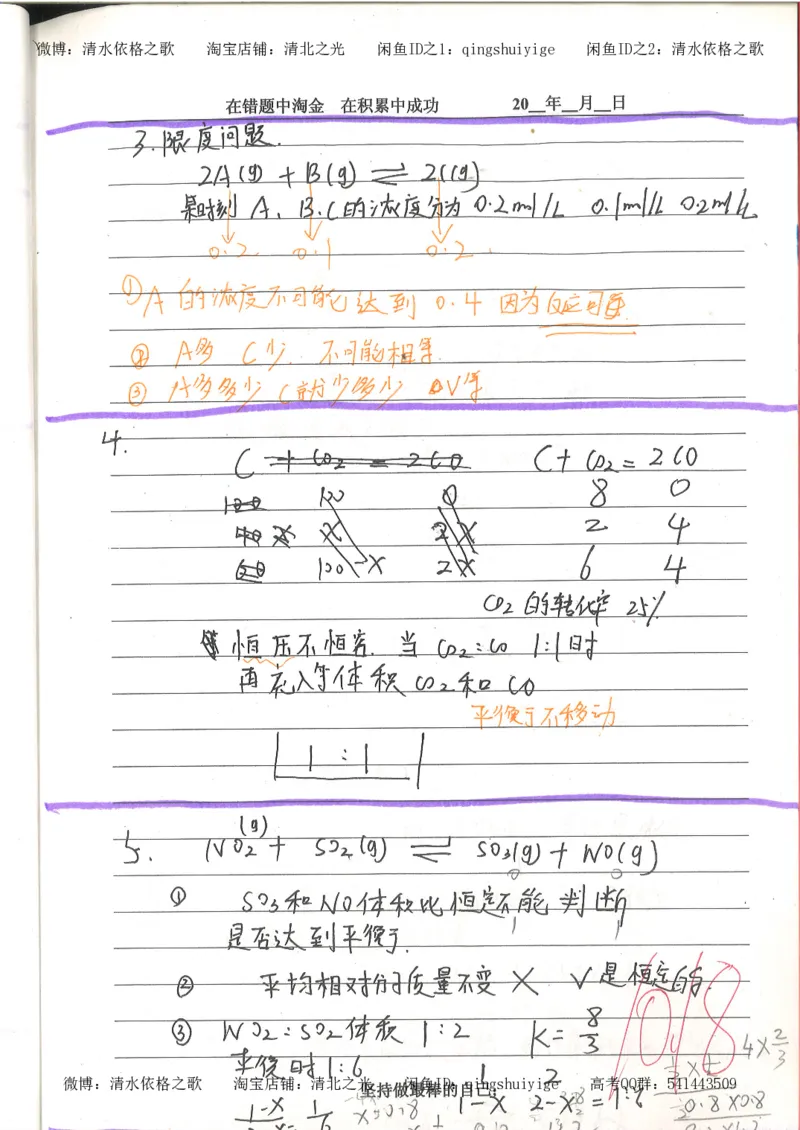 微博：清水依格之歌 淘宝店铺：清北之光 闲鱼ID之1：qingshuiyige 闲鱼ID之2：清水依格之歌
在错题中淘金 在积累中成功 20__年__月__日
3.限度问题.
2A(g) + B(g) ⇌ 2C(g)
某时刻 A、B.C的浓度分为 0.2mol/L 0.1mol/L 0.2mol/L
0.2 0.1 0.2
①A 的浓度不可能达到 0.4 因为反应可逆
② A多 C少. 不可能相等.
③ A多多少 C就少多少 V等
4.
C + CO2 = 2CO C + CO2 = 2CO
100 100 0 8 0
40 X X 2X 2 4
60 100-X 2X 6 4
CO2 的转化率 25%
恒压不恒容. 当 CO2:CO 1:1时
再充入等体积 CO2 和 CO
平衡不移动
1 : 1
5. NO2(g) + SO2(g) ⇌ SO3(g) + NO(g)
① SO3和NO体积比恒定不能判断
是否达到平衡.
② 平均相对分子质量不变 X √是恒定的.
③ NO2:SO2体积 1:2 K= 8/3
平衡时1:6
4×2/3
微博：清水依格之歌 淘宝店铺：清北之光 闲鱼ID：qingshuiyige 高考QQ群：541443509
坚持做最棒的自己
1-X 1/6 X=0.8 1-X 2-X =1:6 0.8×0.8